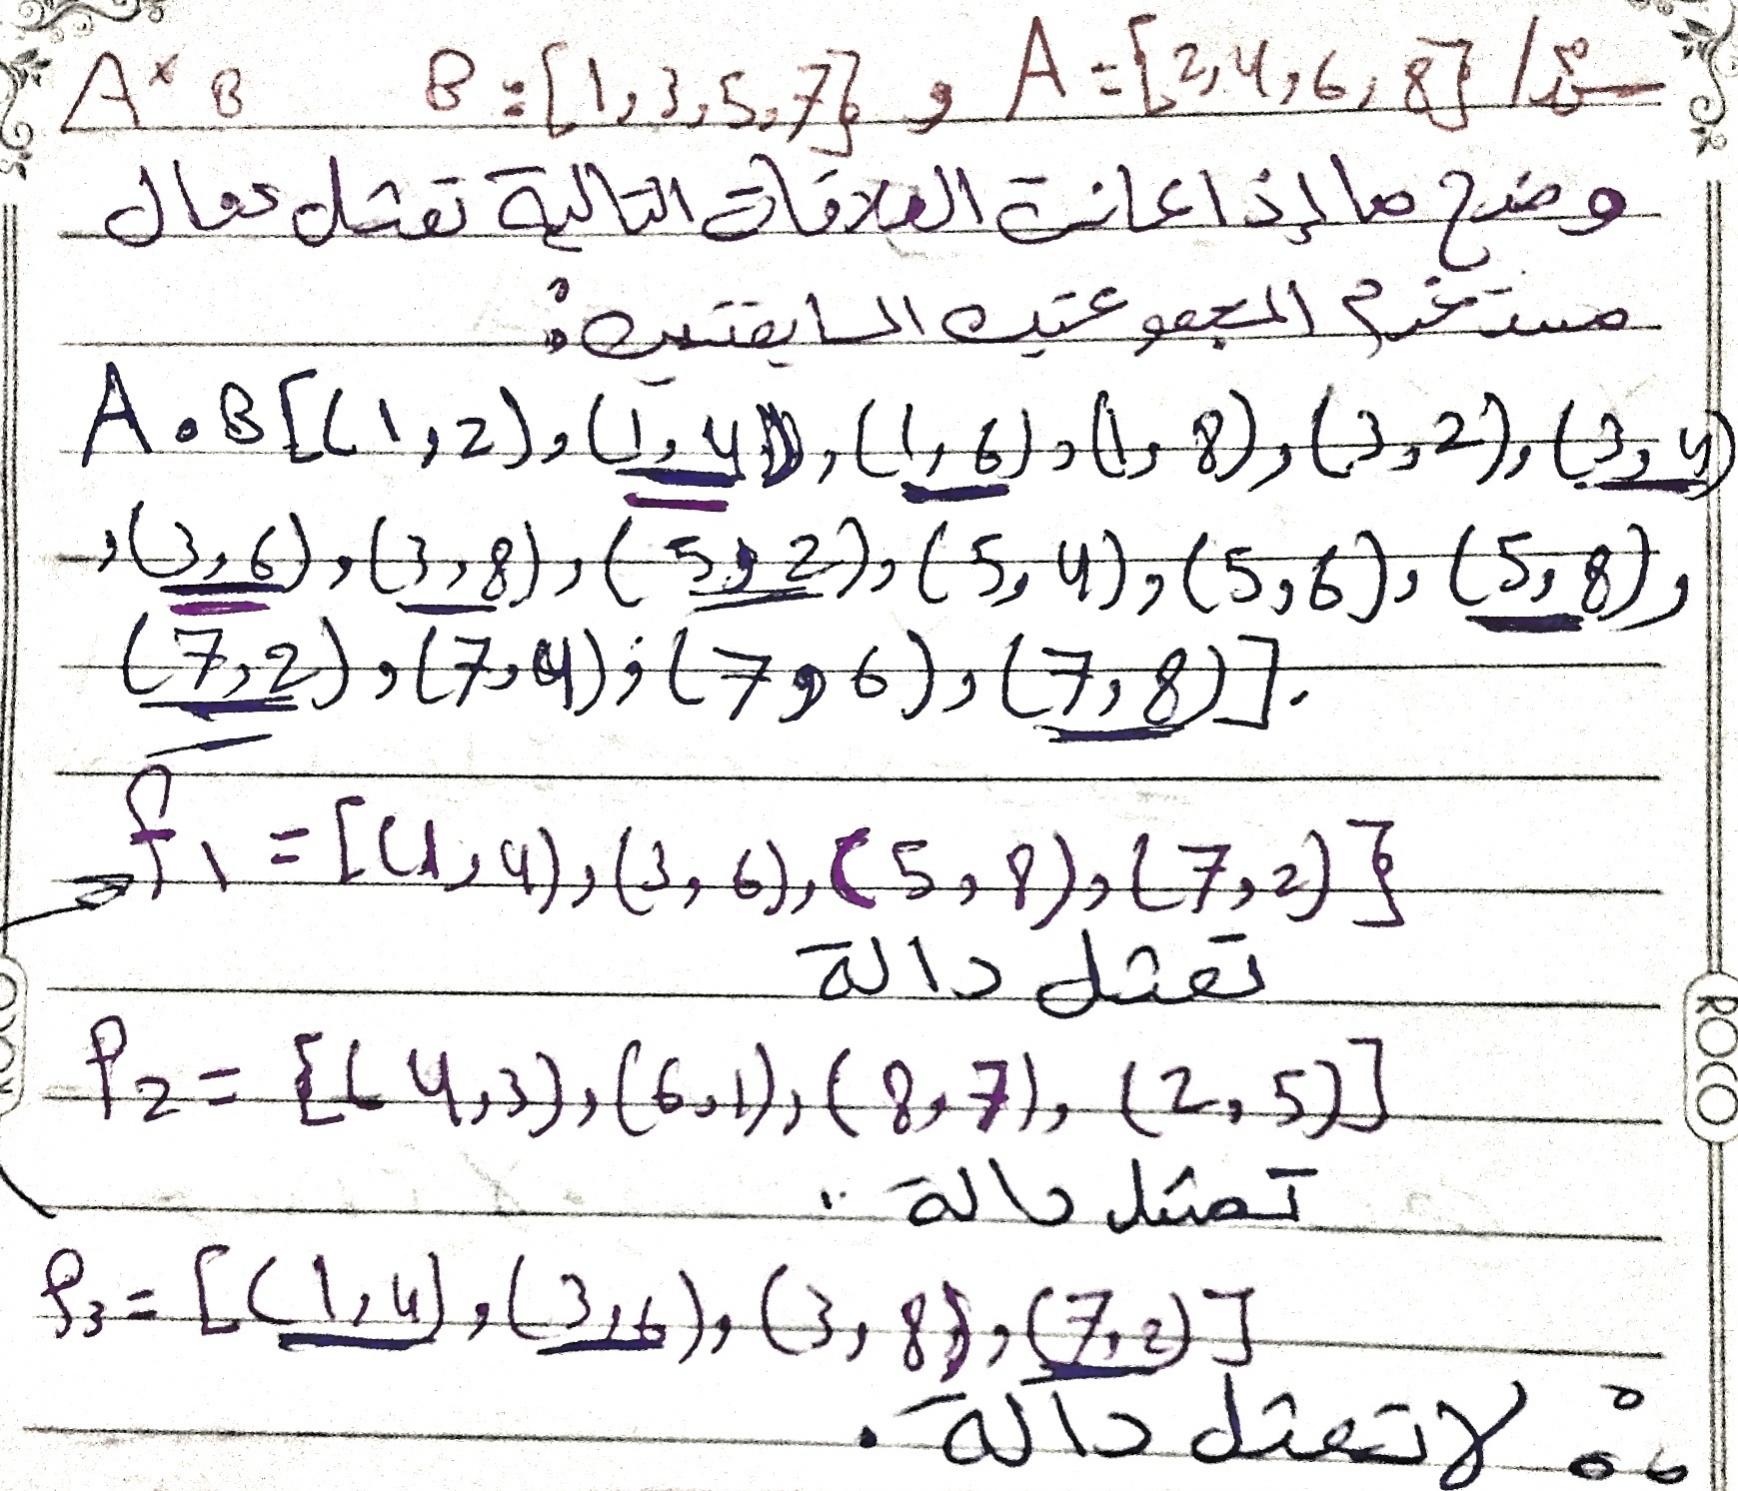 س/ A=[2,4,6,8} و B=[1,3,5,7} A×B
وضح ما إذا كانت العلاقات التالية تمثل دوال
مستخدم المجموعتين السابقتين:
A.B[(1,2),(1,4),(1,6),(1,8),(3,2),(3,4)
,(3,6),(3,8),(5,2),(5,4),(5,6),(5,8),
(7,2),(7,4),(7,6),(7,8)].
f1=[(1,4),(3,6),(5,8),(7,2)}
تمثل دالة
f2={(4,3),(6,1),(8,7),(2,5)]
تمثل دالة
f3=[(1,4),(3,6),(3,8),(7,2)]
لا تمثل دالة.
ROCO